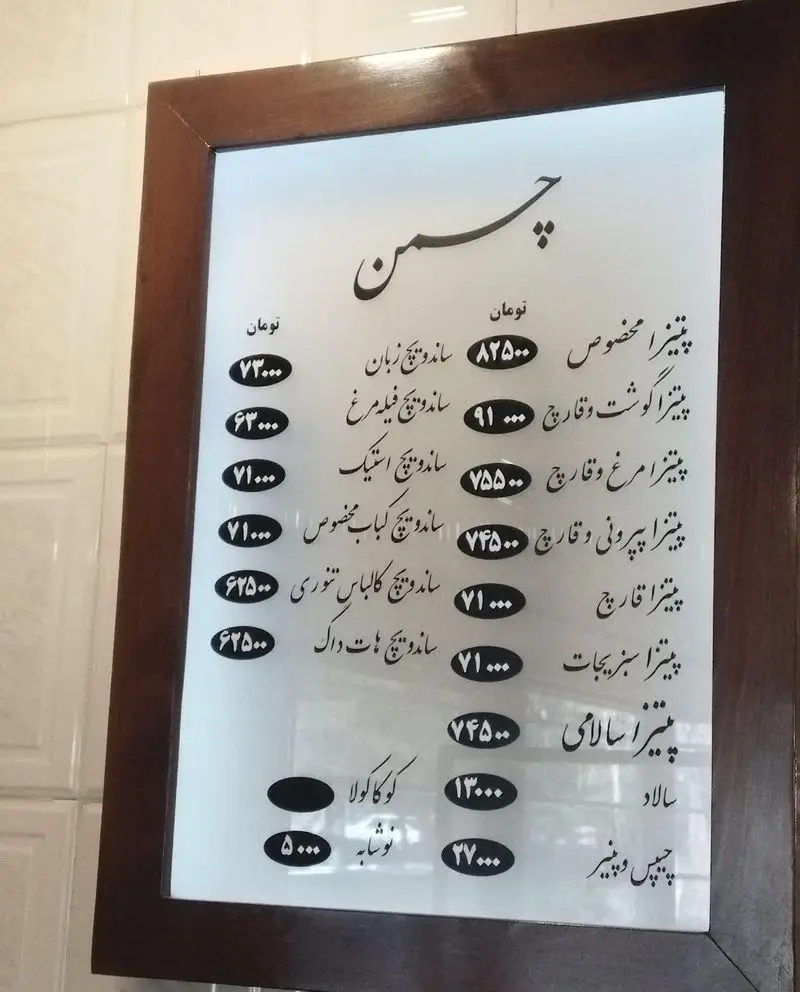 چمن
تومان
پیتزا مخصوص ۸۲۵۰۰
پیتزا گوشت و قارچ ۹۱۰۰۰
پیتزا مرغ و قارچ ۷۵۵۰۰
پیتزا پپرونی و قارچ ۷۴۵۰۰
پیتزا قارچ ۷۱۰۰۰
پیتزا سبزیجات ۷۱۰۰۰
پیتزا سالامی ۷۴۵۰۰
سالاد ۱۳۰۰۰
چیپس و پنیر ۲۷۰۰۰
تومان
ساندویچ زبان ۷۳۰۰۰
ساندویچ فیله مرغ ۶۳۰۰۰
ساندویچ استیک ۷۱۰۰۰
ساندویچ کباب مخصوص ۷۱۰۰۰
ساندویچ کالباس تنوری ۶۲۵۰۰
ساندویچ هات داگ ۶۲۵۰۰
کوکاکولا
نوشابه ۵۰۰۰